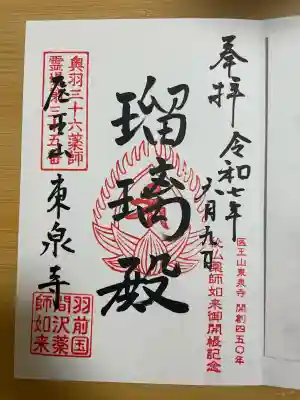 奉拝
令和七年
六月九日
医王山東泉寺 開創四五〇年
秘仏薬師如来御開帳記念
瑠璃殿
奥羽三十六薬師
霊場第三十五番
医王山
東泉寺
羽前国
間沢薬
師如来